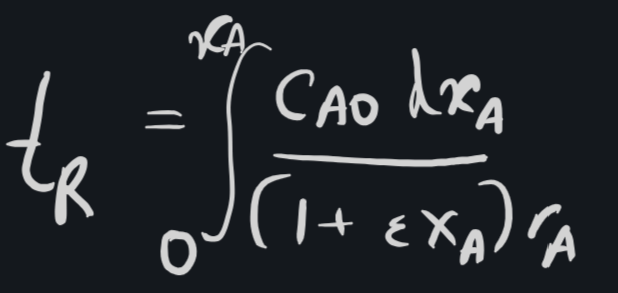 t_R = ∫_0^{x_A} \frac{C_{A0} dx_A}{(1 + εx_A) r_A}